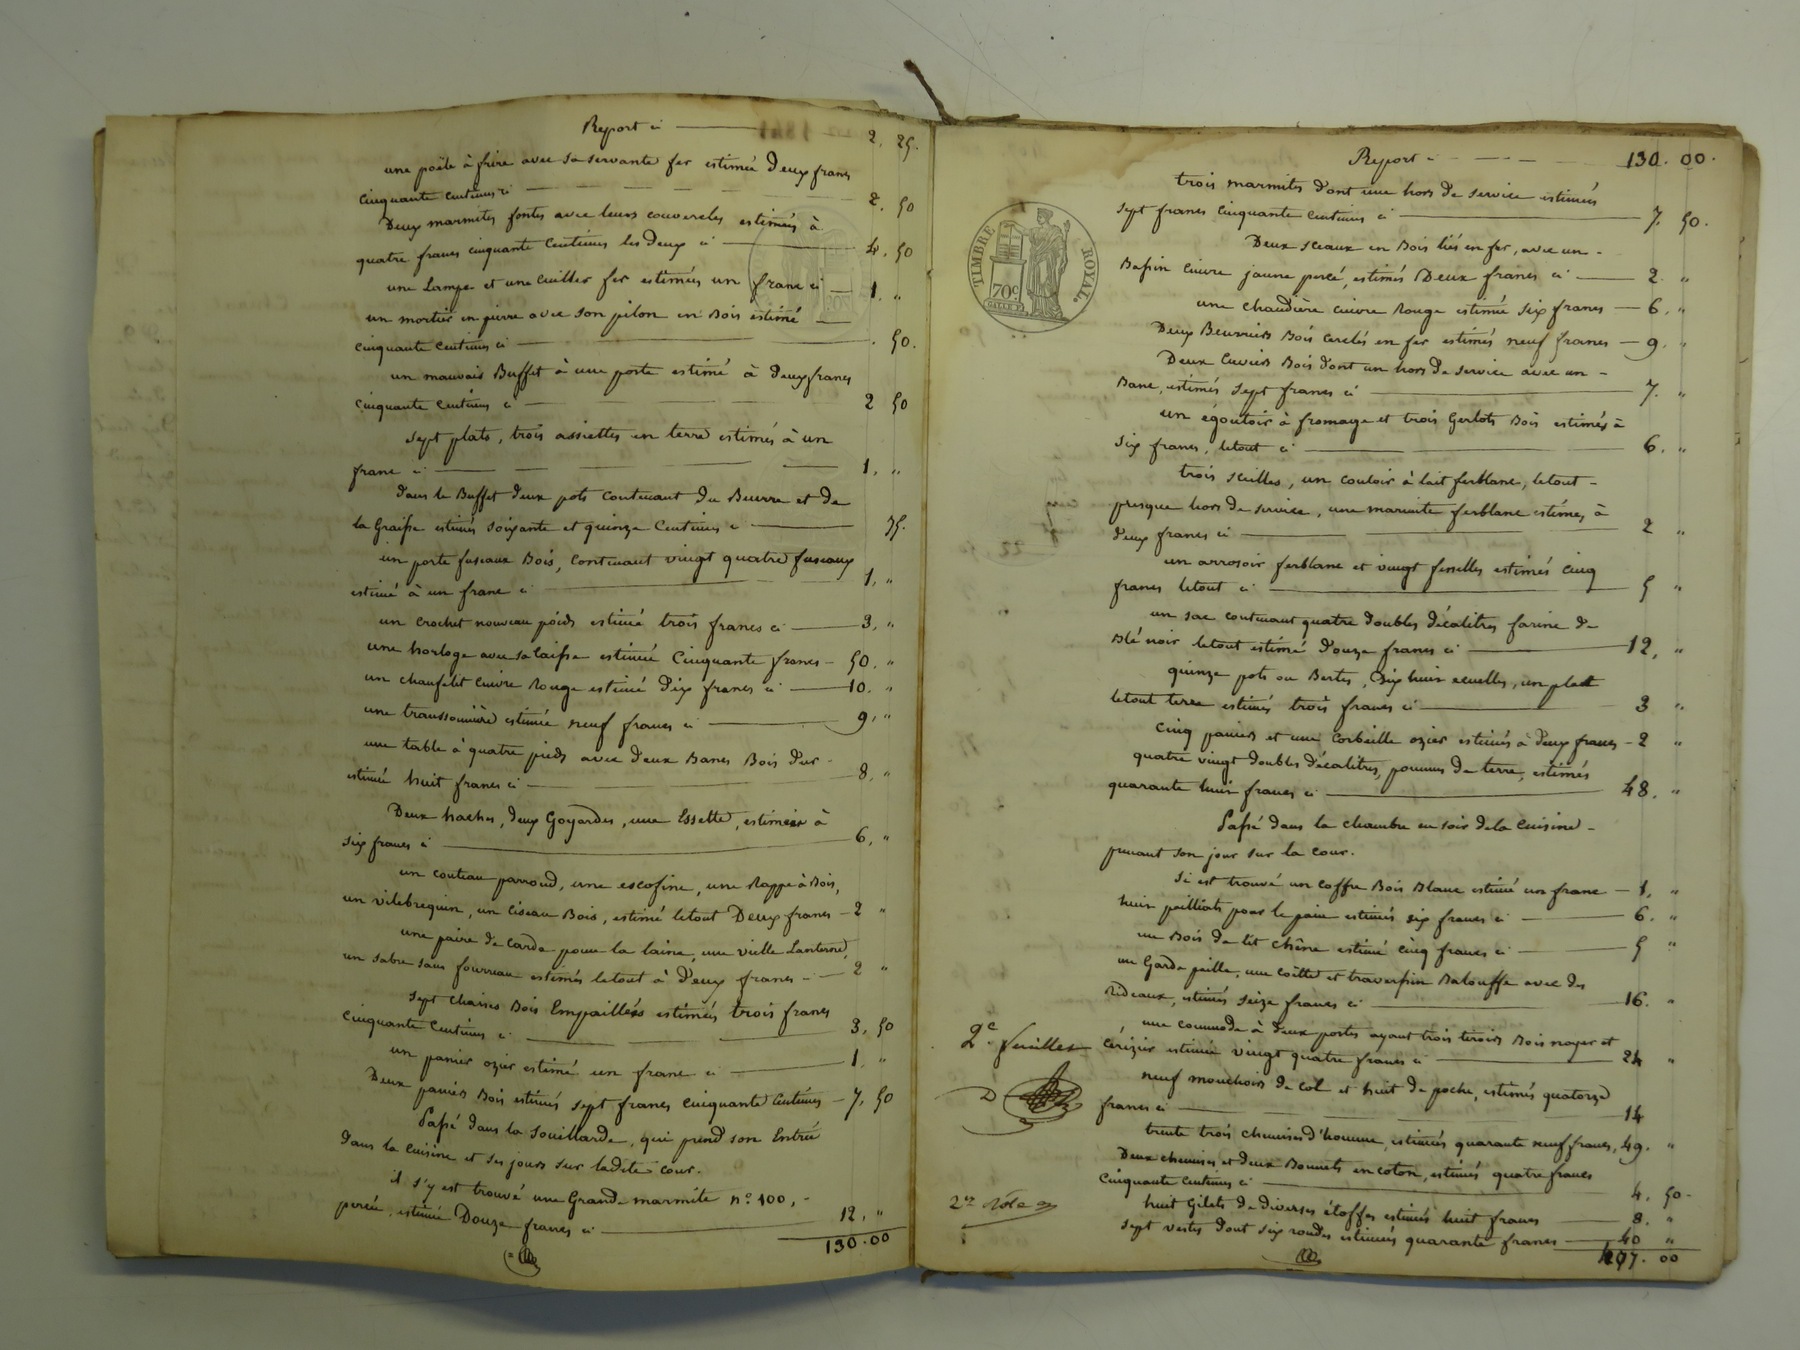 Report ci 2. 25.
une poële à frire avec sa servante fer estimée Deux francs
cinquante centimes ci 2. 50
Deux marmites fontes avec leurs couvercles estimées à
quatre francs cinquante centimes les deux ci 4. 50
une Lampe et une cuiller fer estimées un franc ci 1. "
un mortier en pierre avec son pilon en Bois estimé
cinquante centimes ci . 50.
un mauvais Buffet à une porte estimé à deux francs
cinquante centimes ci 2 50
sept plats, trois assiettes en terre estimés à un
franc ci 1. "
dans le Buffet deux pots contenant du Beurre et de
la Graisse estimés soixante et quinze centimes ci 75.
un porte fuseaux Bois, contenant vingt quatre fuseaux
estimé à un franc ci 1, "
un crochet nouveau poids estimé trois francs ci 3, "
une horloge avec sa caisse estimée Cinquante francs 50. "
un chaufelit cuivre Rouge estimé dix francs ci 10. "
une estimée neuf francs ci 9, "
une table à quatre pieds avec deux Bancs Bois dur
estimée huit francs ci 8, "
Deux haches, deux Goyardes, une Essette, estimées à
six francs ci 6, "
un couteau parroud, une escofine, une Rappe à Bois,
un vilebrequin, un ciseau Bois, estimé letout Deux francs 2 "
une paire de Carde pour la laine, une vielle Lanterne,
un sabre sans fourreau estimés letout à Deux francs 2 "
sept chaises Bois Empaillées estimées trois francs
cinquante centimes ci 3, 50
un panier ozier estimé un franc ci 1, "
Deux paniers Bois estimés sept francs cinquante centimes 7, 50
Passé dans la souillarde, qui prend son Entrée
dans la cuisine et ses jours sur ladite cour.
il s'y est trouvé une Grande marmite n° 100,
percée, estimée Douze francs ci 12, "
130.00
Report ci 130. 00.
trois marmites dont une hors de service estimées
sept francs cinquante centimes ci 7. 50.
Deux sceaux en Bois liés en fer, avec un
Bassin cuivre jaune percé, estimés Deux francs ci 2. "
une chaudière cuivre Rouge estimée six francs 6, "
Deux Bois cerclés en fer estimés neuf francs 9. "
Deux cuviers Bois dont un hors de service avec un
Banc, estimés sept francs ci 7. "
un égoutoir à fromage et trois Gerlots Bois estimés à
six francs, letout ci 6. "
trois seilles, un couloir à lait ferblanc, letout
presque hors de service, une marmite ferblanc estimés, à
deux francs ci 2 "
un arrosoir ferblanc et vingt fesselles estimés cinq
francs letout ci 5 "
un sac contenant quatre doubles décalitres farine de
Blé noir letout estimé douze francs ci 12, "
quinze pots ou Bertes, dix huit ecuelles, un plat
letout terre estimés trois francs ci 3 "
Cinq paniers et une Corbeille ozier estimés à deux francs 2 "
quatre vingt doubles décalitres, pommes de terre, estimés
quarante huit francs ci 48. "
Passé dans la chambre en soir dela cuisine
prenant son jour sur la cour.
Si est trouvé un coffre Bois Blanc estimé un franc 1, "
huit paillats pour le pain estimés six francs ci 6. "
un Bois de lit chêne estimé cinq francs ci 5 "
un Garde paille, une coëtte et traversin Balouffe avec des
rideaux, estimés seize francs ci 16. "
une commode à deux portes ayant trois tiroirs Bois noyer et
cérizier estimée vingt quatre francs ci 24 "
neuf mouchoirs de col et huit de poche, estimés quatorze
francs ci 14
trente trois chemises d'homme estimées quarante neuf francs, 49. "
Deux chemises et deux Bonnets en coton, estimés quatre francs
cinquante centimes ci 4. 50
huit Gilets de diverses étoffes estimés huit francs 8. "
sept vestes dont six rondes estimées quarante francs 40 "
407. 00
TIMBRE ROYAL.
70c
2e. feuillet
D
2e Rôle